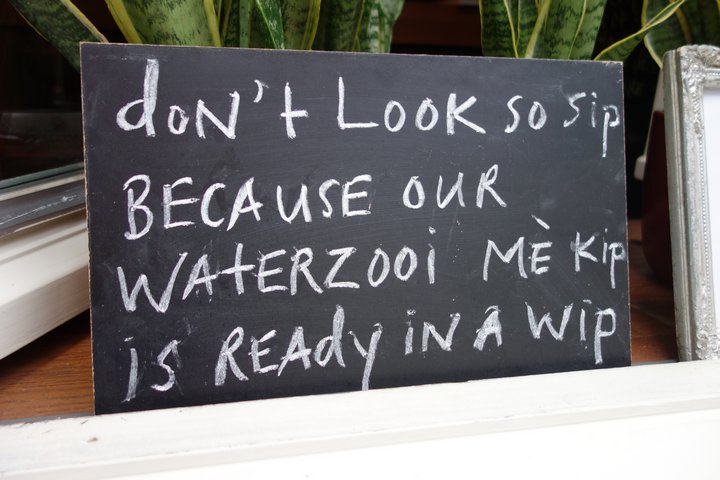 don't LOOK so sip
BECAUSE OUR
WATERZOOi MÈ Kip
is READy iN A Wip